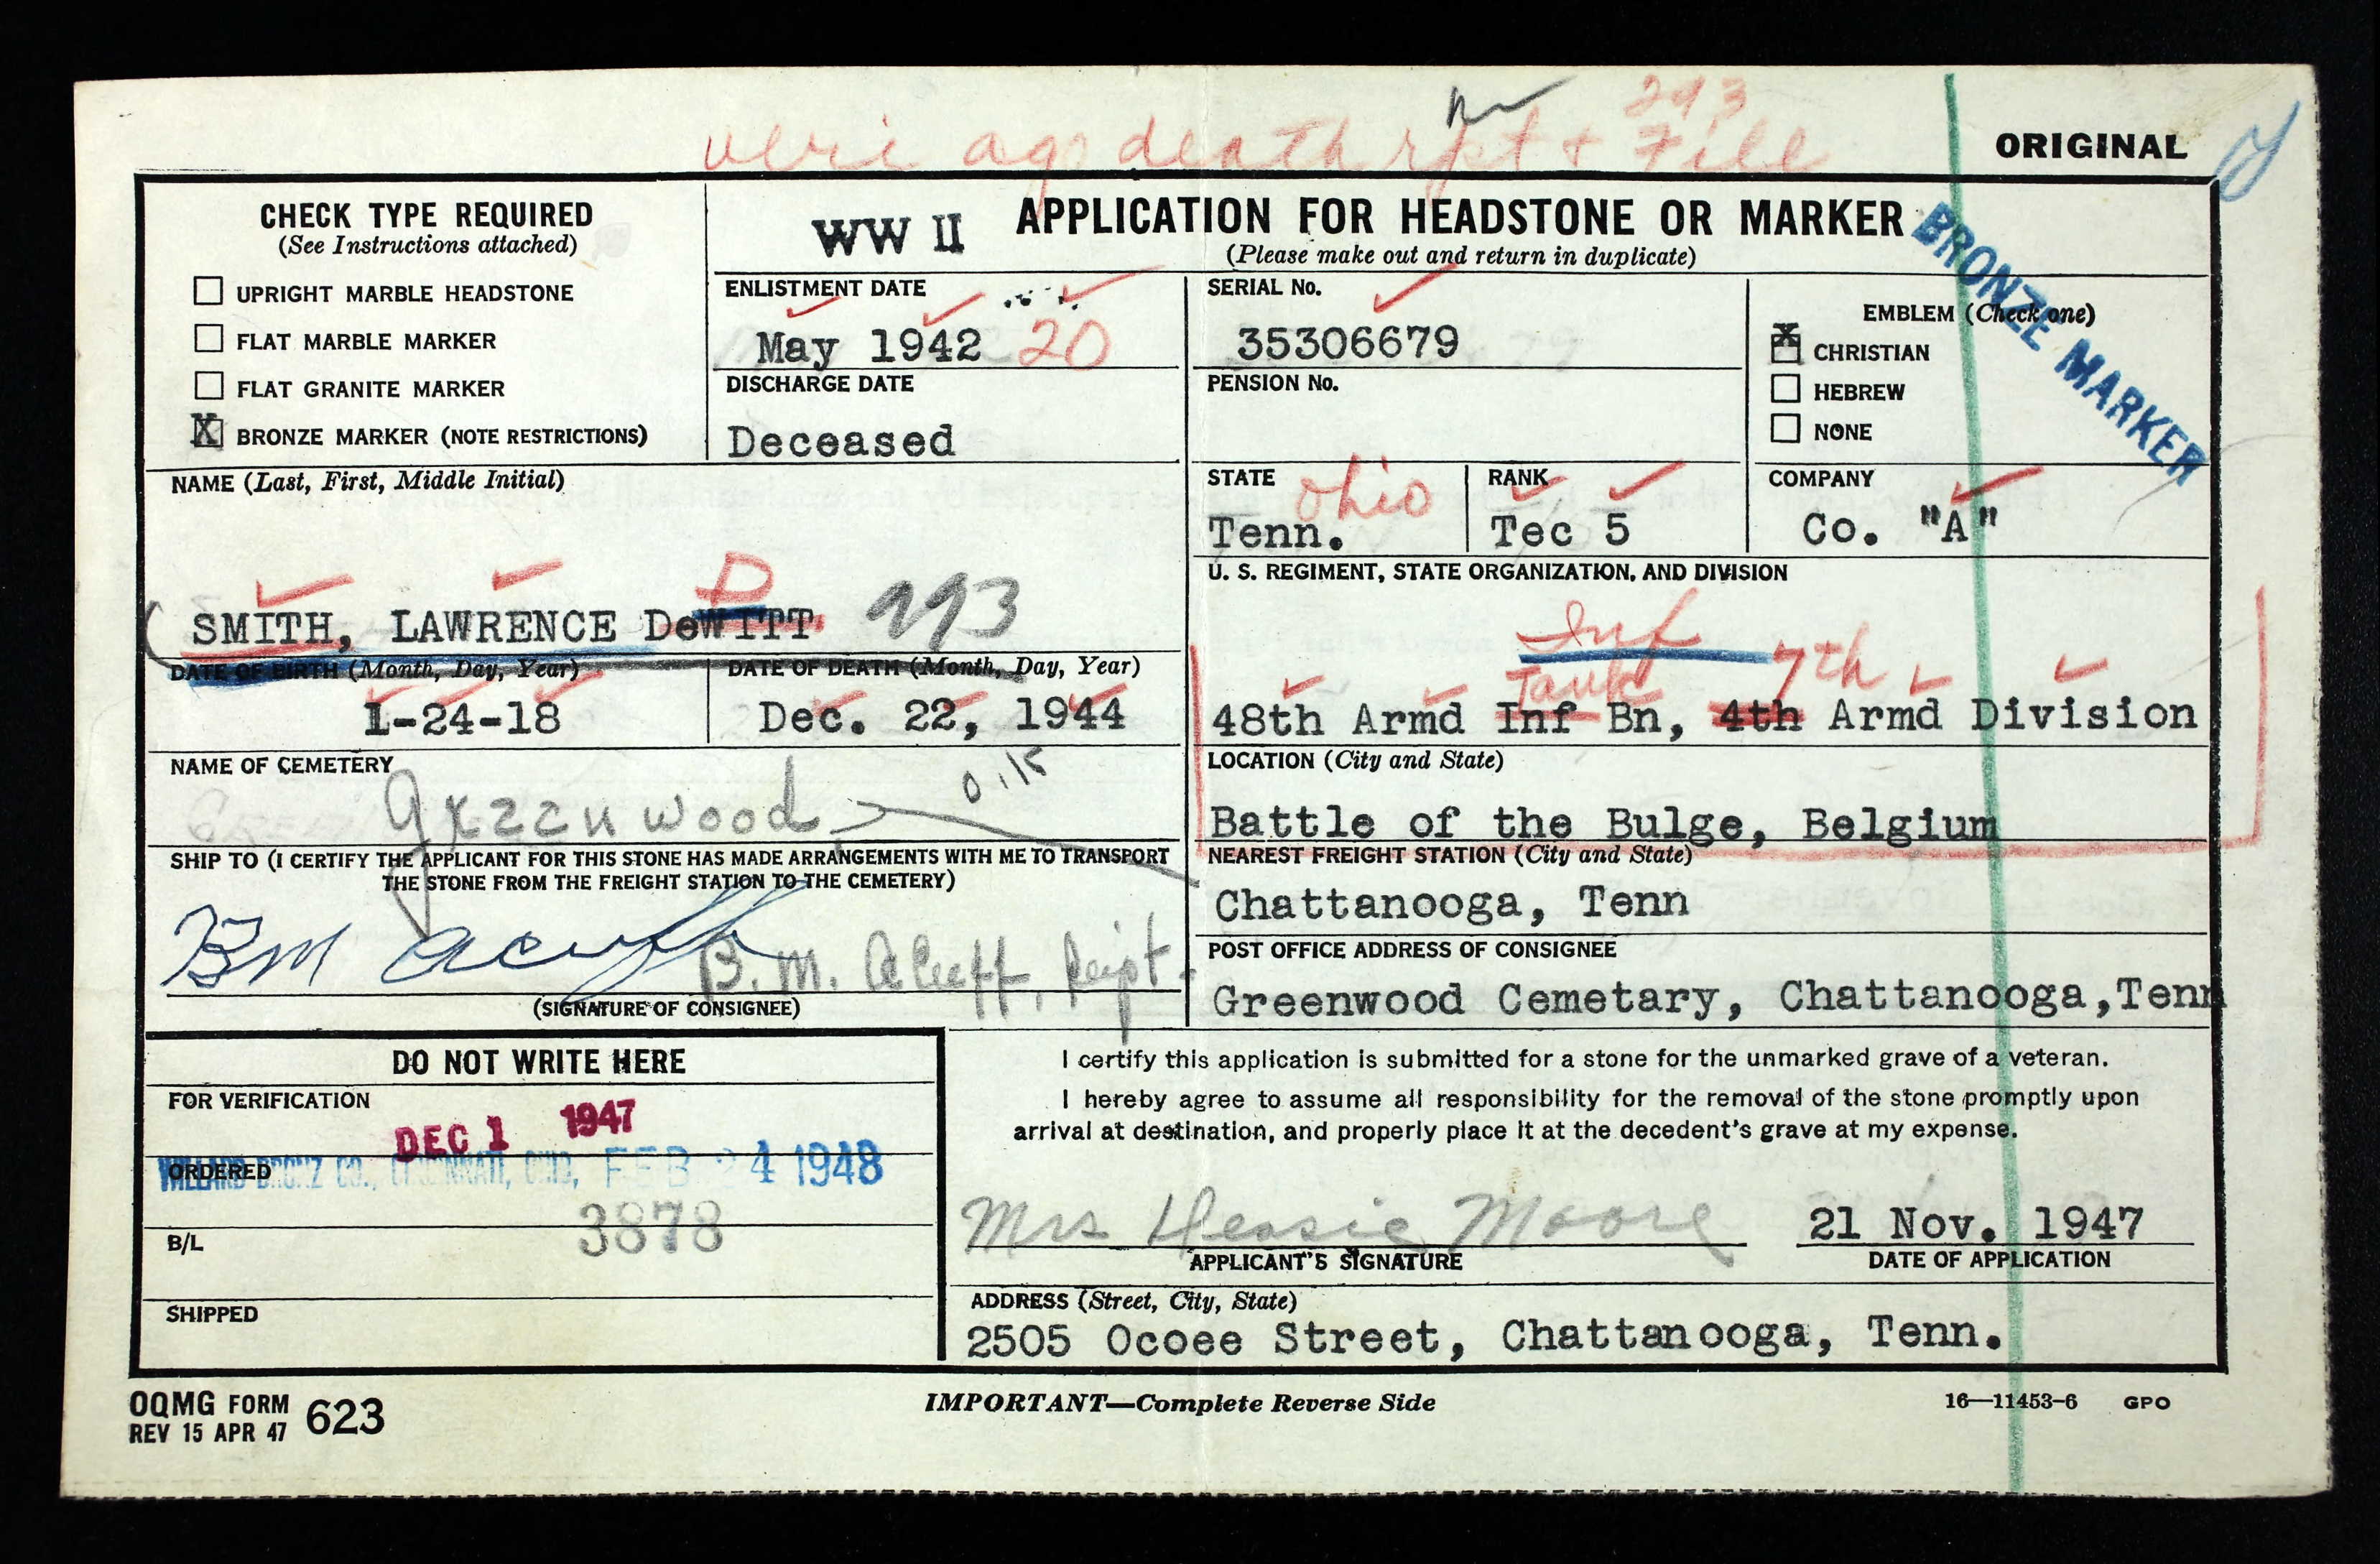 293
veri ago death rpt + File
ORIGINAL
CHECK TYPE REQUIRED
(See Instructions attached)
UPRIGHT MARBLE HEADSTONE
FLAT MARBLE MARKER
FLAT GRANITE MARKER
X BRONZE MARKER (NOTE RESTRICTIONS)
WW II
APPLICATION FOR HEADSTONE OR MARKER
(Please make out and return in duplicate)
BRONZE MARKER
ENLISTMENT DATE
May 1942 20
DISCHARGE DATE
Deceased
SERIAL No.
35306679
PENSION No.
EMBLEM (Check one)
X CHRISTIAN
HEBREW
NONE
NAME (Last, First, Middle Initial)
D
SMITH, LAWRENCE DeWITT 293
STATE
Ohio
Tenn.
RANK
Tec 5
COMPANY
Co. "A"
U. S. REGIMENT, STATE ORGANIZATION, AND DIVISION
Inf
Tank 7th
48th Armd Inf Bn, 4th Armd Division
DATE OF BIRTH (Month, Day, Year)
1-24-18
DATE OF DEATH (Month, Day, Year)
Dec. 22, 1944
NAME OF CEMETERY
Greenwood O.K
LOCATION (City and State)
Battle of the Bulge, Belgium
SHIP TO (I CERTIFY THE APPLICANT FOR THIS STONE HAS MADE ARRANGEMENTS WITH ME TO TRANSPORT
THE STONE FROM THE FREIGHT STATION TO THE CEMETERY)
BM Acuff B. M. Acuff, Supt.
(SIGNATURE OF CONSIGNEE)
NEAREST FREIGHT STATION (City and State)
Chattanooga, Tenn
POST OFFICE ADDRESS OF CONSIGNEE
Greenwood Cemetary, Chattanooga,Tenn
DO NOT WRITE HERE
FOR VERIFICATION
DEC 1 1947
ORDERED
WILLARD BRONZ CO., CINCINNATI, OHIO, FEB 24 1948
3878
B/L
SHIPPED
I certify this application is submitted for a stone for the unmarked grave of a veteran.
I hereby agree to assume all responsibility for the removal of the stone promptly upon
arrival at destination, and properly place it at the decedent's grave at my expense.
Mrs Hessie Moore
APPLICANT'S SIGNATURE
21 Nov. 1947
DATE OF APPLICATION
ADDRESS (Street, City, State)
2505 Ocoee Street, Chattanooga, Tenn.
OQMG FORM 623
REV 15 APR 47
IMPORTANT—Complete Reverse Side
16—11453-6 GPO